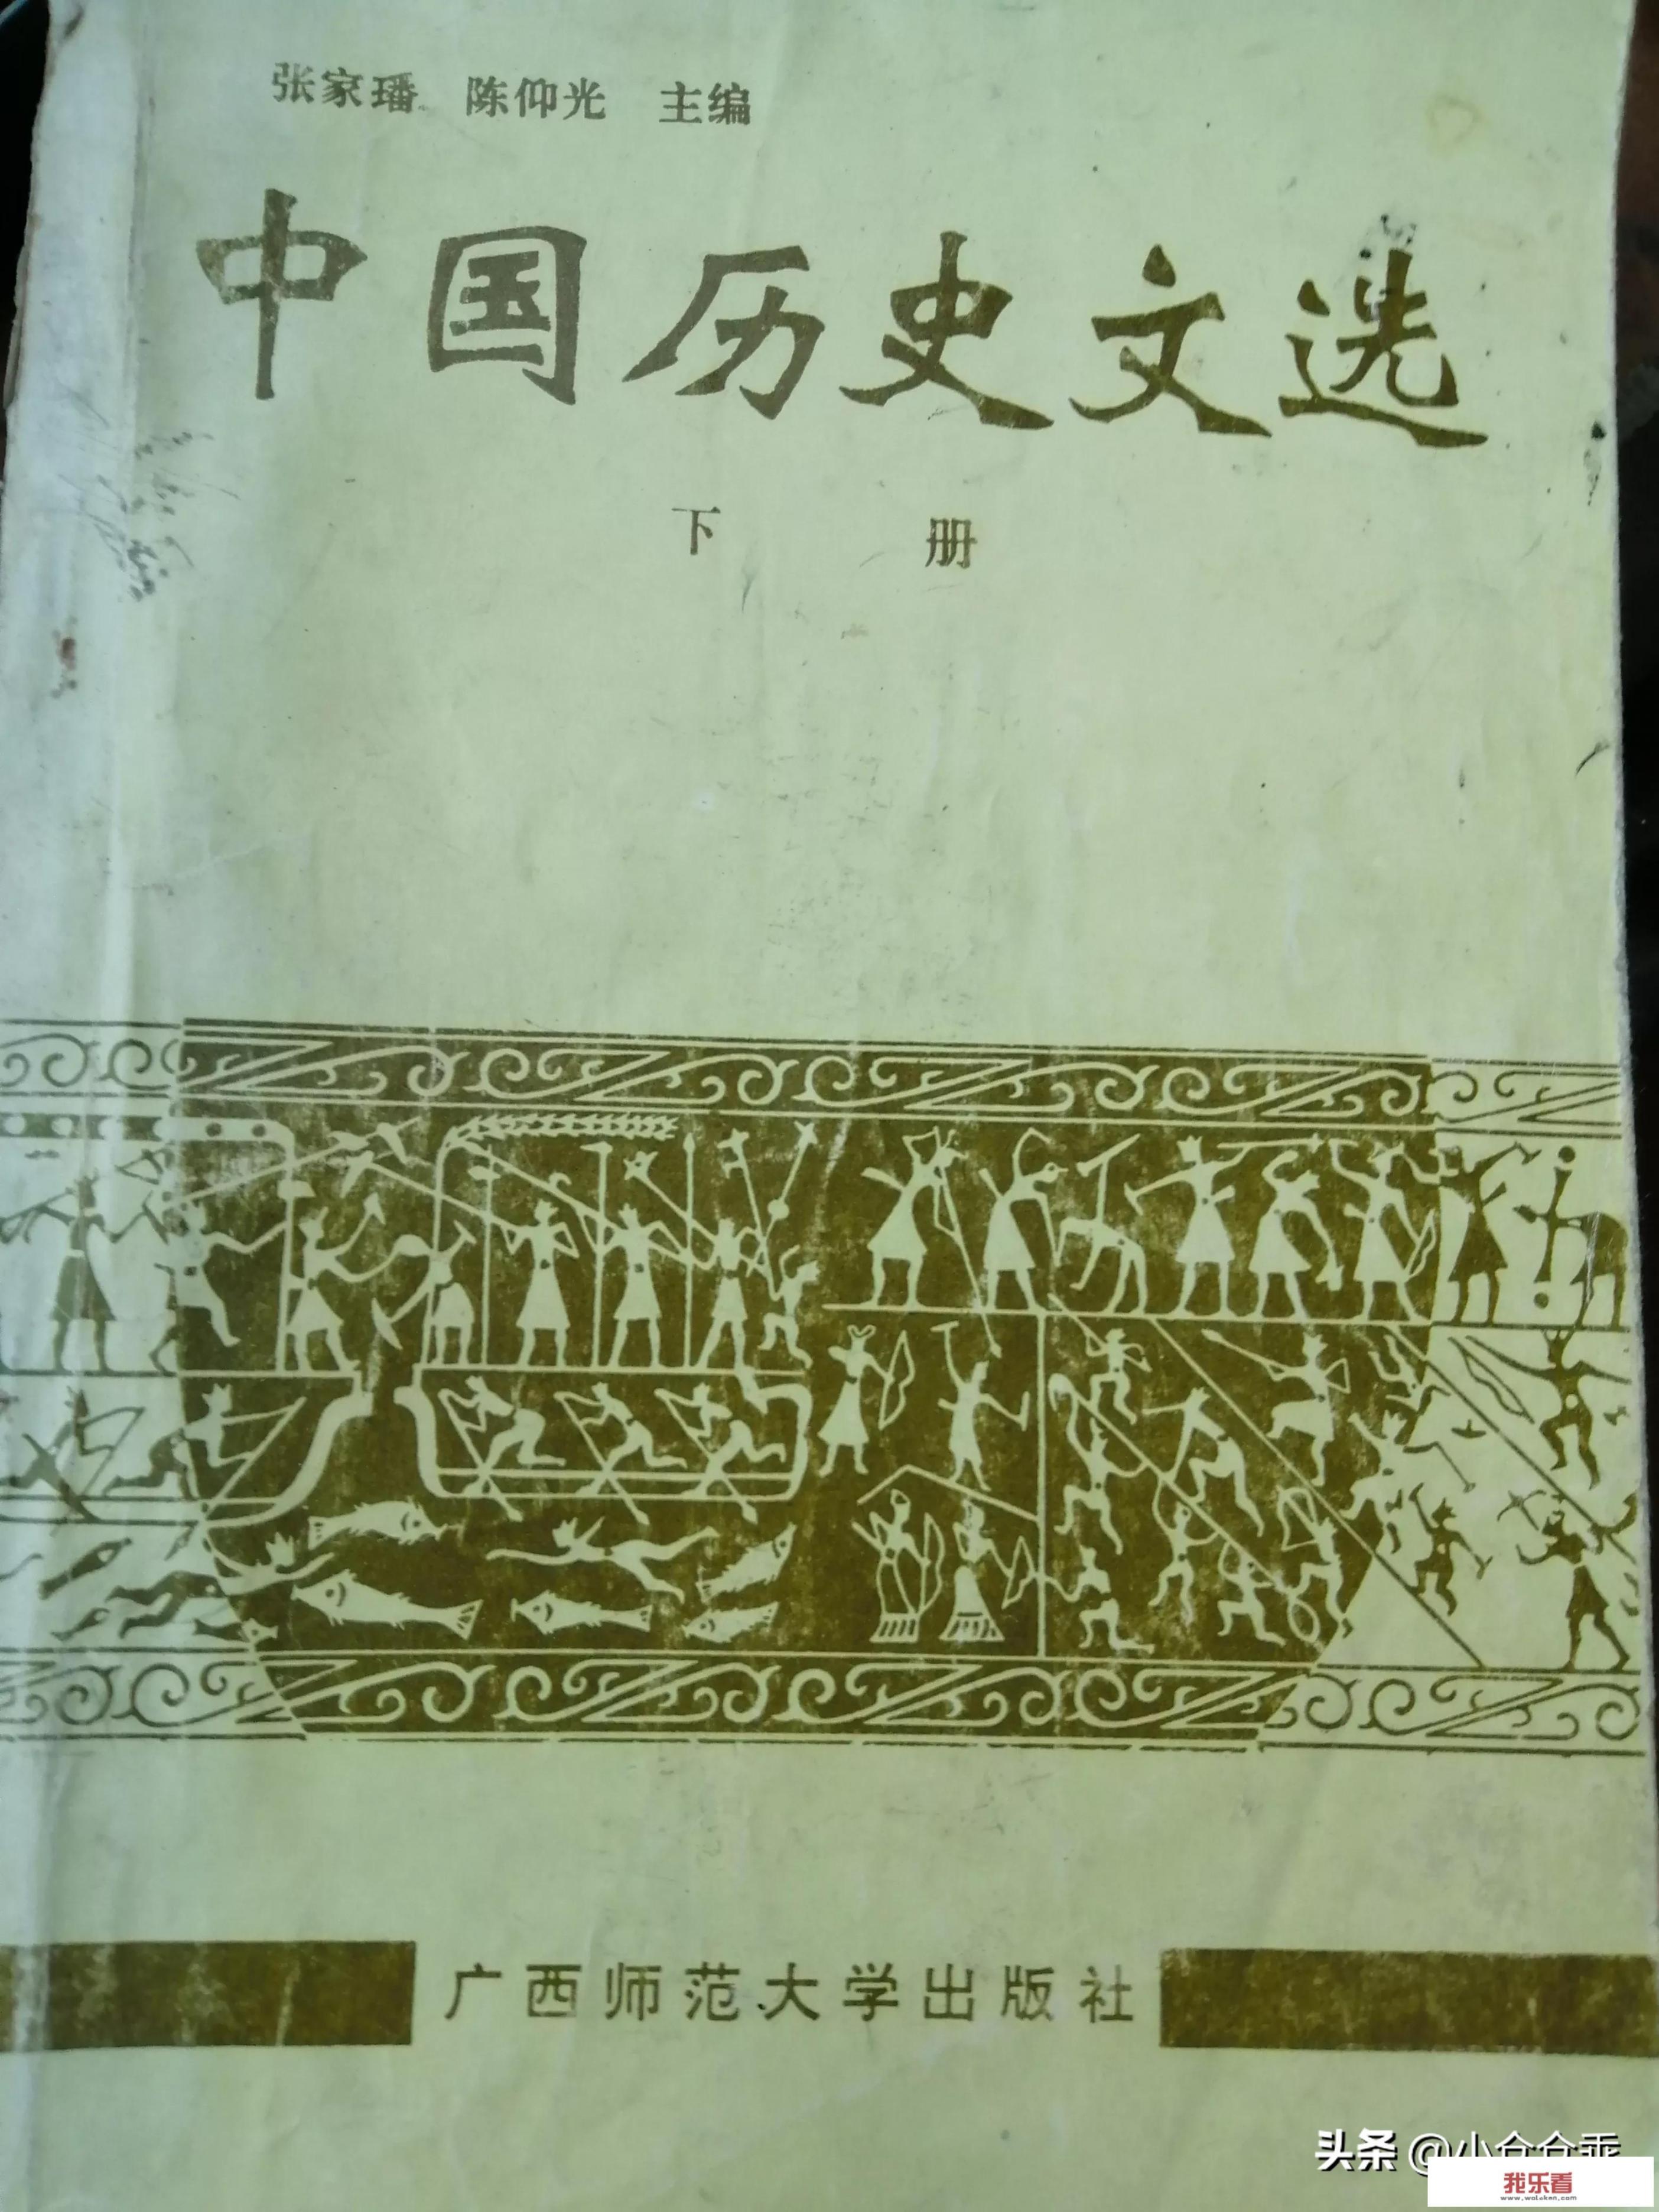 张家璠 陈仰光 主编
中国历史文选
下 册
广西师范大学出版社
头条 @小仓仓乖
我乐看